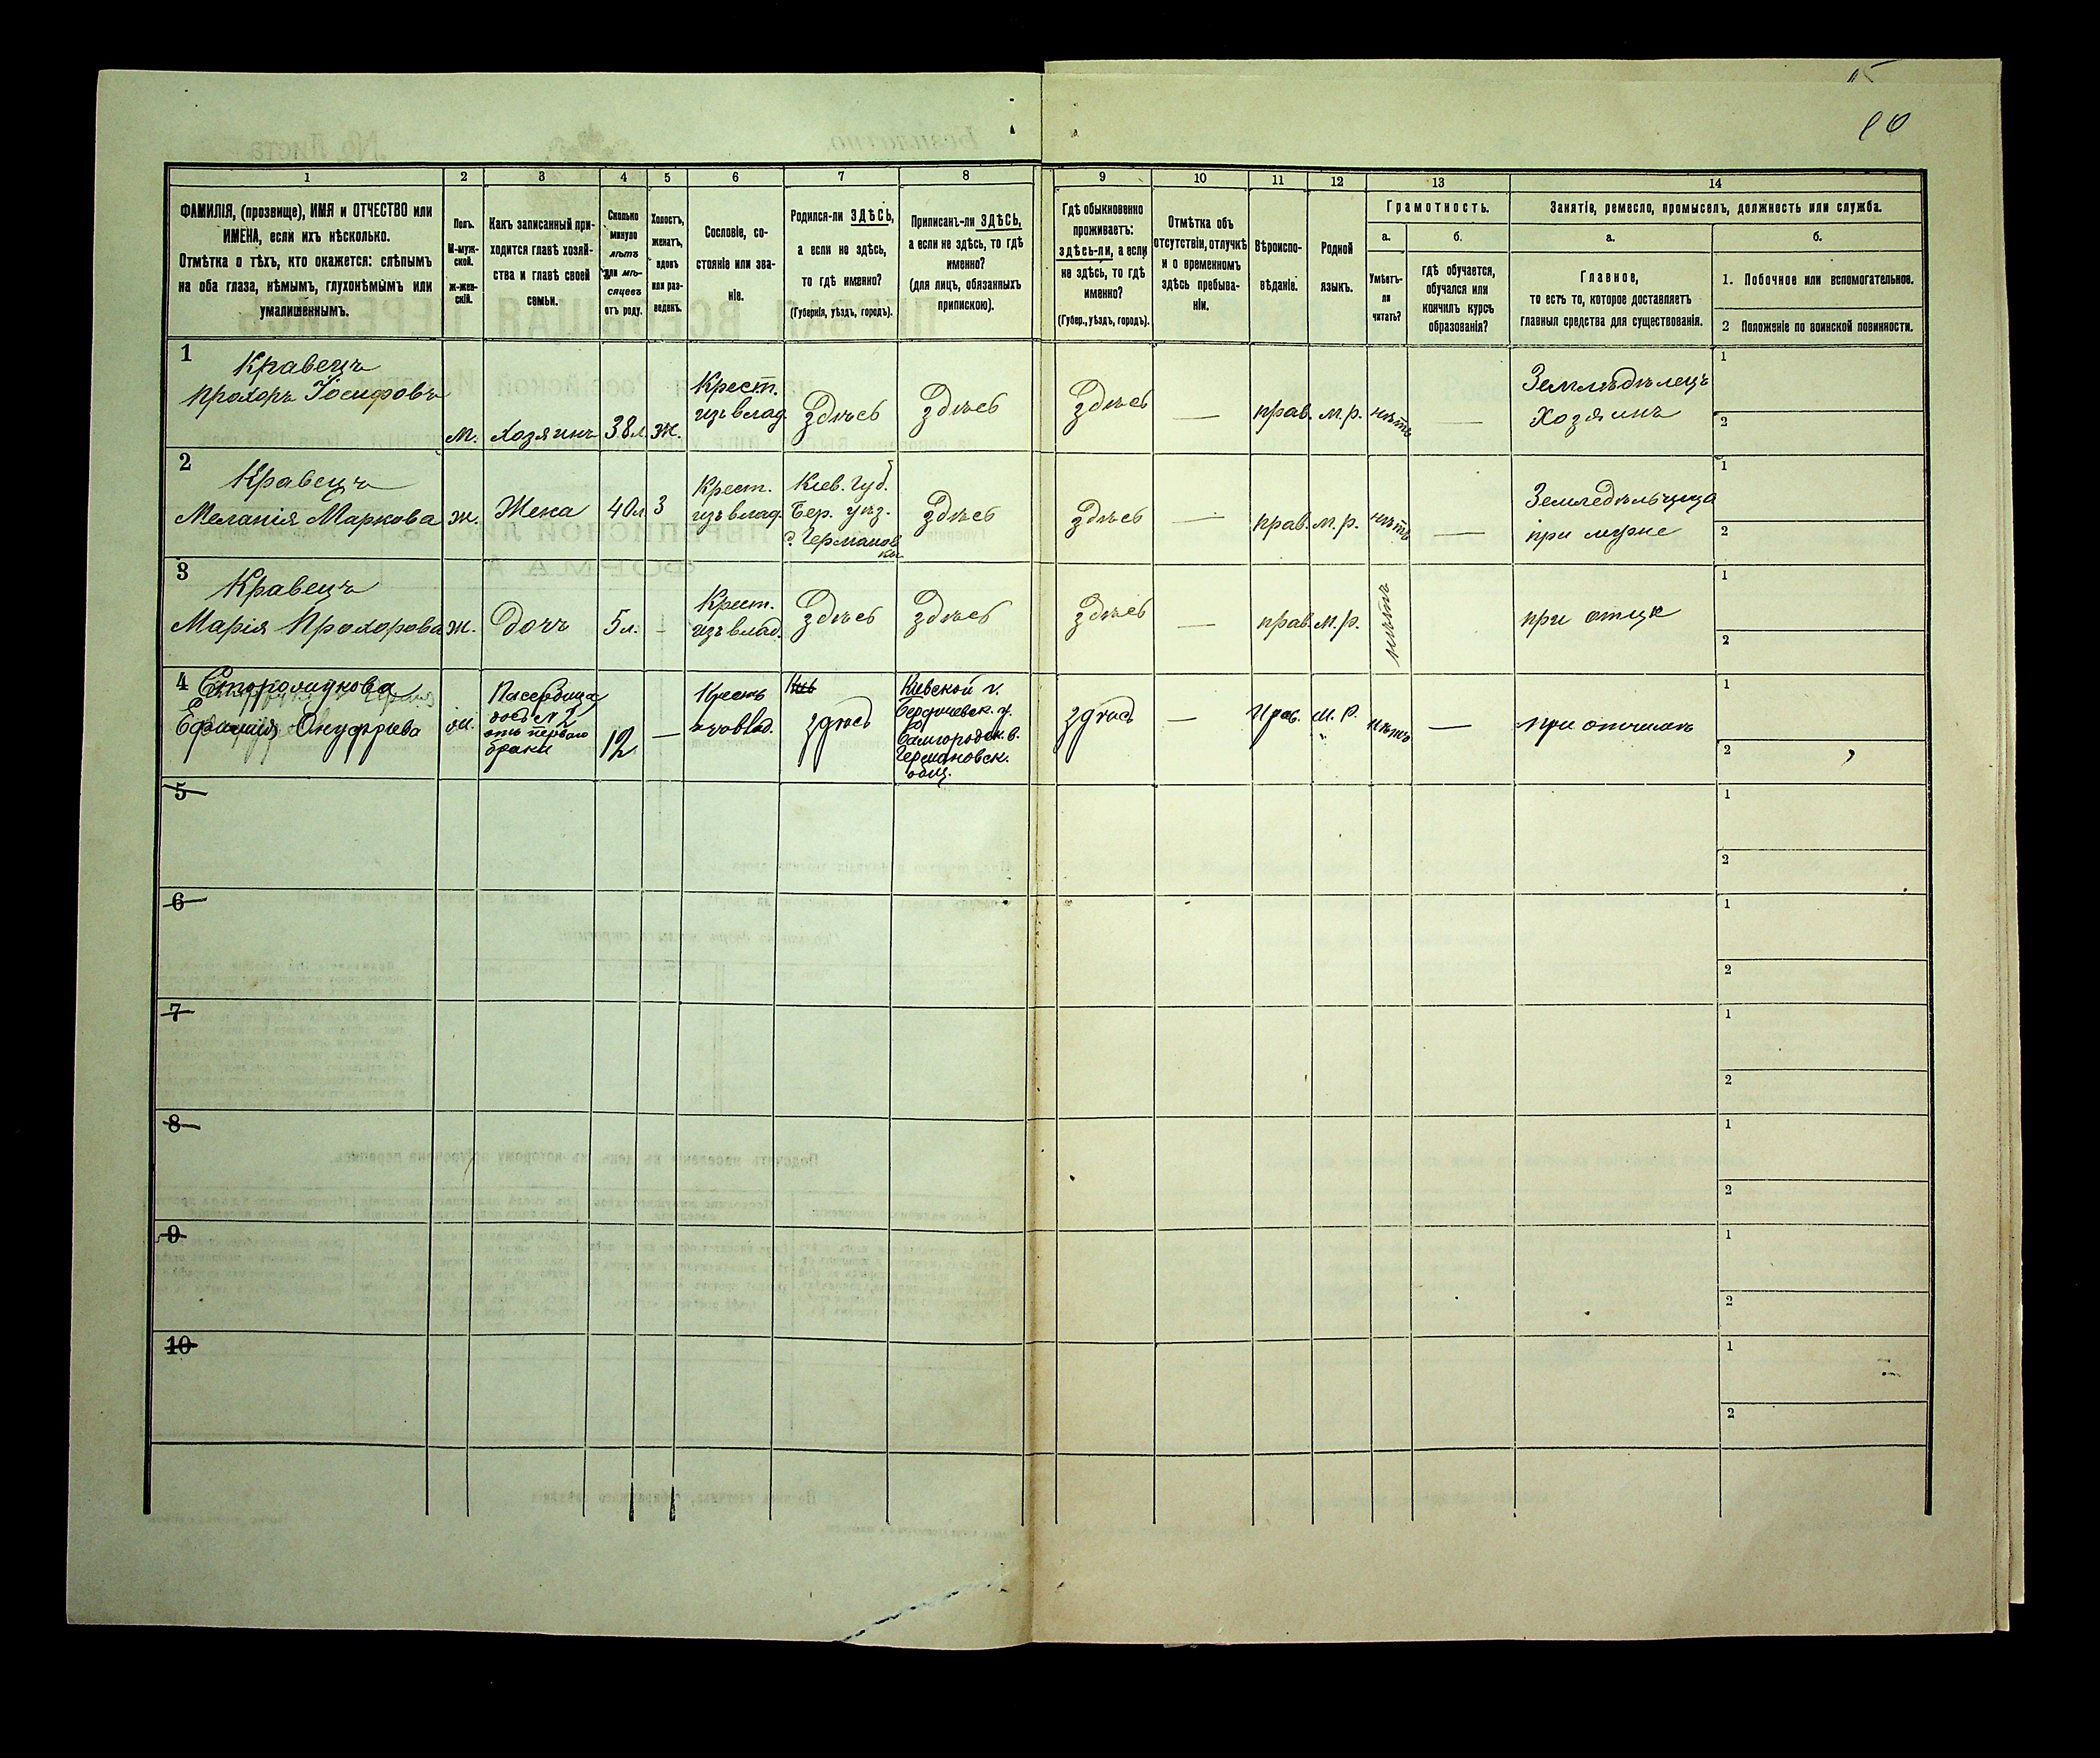 90
1 2 3 4 5 6 7 8 9 10 11 12 13 14
ФАМИЛІЯ, (прозвище), ИМЯ и ОТЧЕСТВО или
ИМЕНА, если ихъ нѣсколько.
Отмѣтка о тѣхъ, кто окажется: слѣпымъ
на оба глаза, нѣмымъ, глухонѣмымъ или
умалишеннымъ.
Полъ.
М-муж-
ской.
ж-жен-
скій.
Какъ записанный при-
ходится главѣ хозяй-
ства и главѣ своей
семьи.
Сколько
минуло
лѣтъ
или мѣ-
сяцевъ
отъ роду.
Холостъ,
женатъ,
вдовъ
или раз-
веденъ.
Сословіе, со-
стояніе или зва-
ніе.
Родился-ли ЗДѢСЬ,
а если не здѣсь,
то гдѣ именно?
(Губернія, уѣздъ, городъ).
Приписанъ-ли ЗДѢСЬ,
а если не здѣсь, то гдѣ
именно?
(для лицъ, обязанныхъ
припискою).
Гдѣ обыкновенно
проживаетъ:
здѣсь-ли, а если
не здѣсь, то гдѣ
именно?
(Губер., уѣздъ, городъ).
Отмѣтка объ
отсутствіи, отлучкѣ
и о временномъ
здѣсь пребыва-
ніи.
Вѣроиспо-
вѣданіе.
Родной
языкъ.
Грамотность.
а.
Умѣетъ-
ли
читать?
б.
гдѣ обучается,
обучался или
кончилъ курсъ
образованія?
Занятіе, ремесло, промыселъ, должность или служба.
а.
Главное,
то есть то, которое доставляетъ
главныя средства для существованія.
б.
1. Побочное или вспомогательное.
2 Положеніе по воинской повинности.
1
Кравецъ
Прохоръ Іосифовъ
м.
Хозяинъ
38 л.
ж.
Крест.
изъ влад.
Здѣсь
Здѣсь
Здѣсь
—
прав.
м. р.
нѣтъ
—
Землѣдѣлецъ
Хозяинъ
1
2
2
Кравецъ
Меланія Маркова
ж.
Жена
40 л
З
Крест.
изъ влад.
Кіев. Губ.
Бер. уѣз.
с. Германов
ки
Здѣсь
Здѣсь
—
прав.
м. р.
нѣтъ
—
Земледѣльчица
при мужѣ
1
2
3
Кравецъ
Марія Прохорова
ж.
Дочь
5 л.
—
Крест.
изъ влад.
Здѣсь
Здѣсь
Здѣсь
—
прав.
м. р.
нѣтъ
при отцѣ
1
2
4
Онуфріева
12
—
здѣсь
Кіевской г.
Бердичевск. у.
Германовск.
общ.
здѣсь
—
Прав.
М. Р.
нѣтъ
—
при отчимѣ
1
2
5
1
2
6
1
2
7
1
2
8
1
2
9
1
2
10
1
2